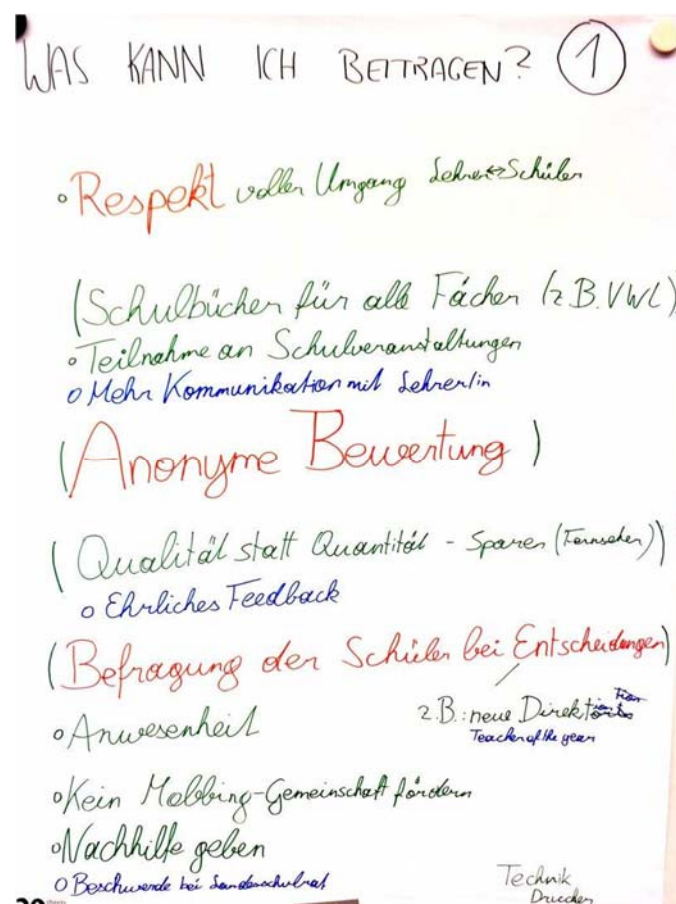 WAS KANN ICH BEITRAGEN? 1
o Respekt voller Umgang Lehrer↔Schüler
(Schulbücher für alle Fächer (z.B. VWL)
o Teilnahme an Schulveranstaltungen
o Mehr Kommunikation mit Lehrer/in
(Anonyme Bewertung)
(Qualität statt Quantität - Sparen (Fernseher))
o Ehrliches Feedback
(Befragung der Schüler bei Entscheidungen)
o Anwesenheit
z.B.: neue Direktion
Teacher of the year
o Kein Mobbing-Gemeinschaft fördern
o Nachhilfe geben
o Beschwerde bei Landesschulrat
Technik
Drucker